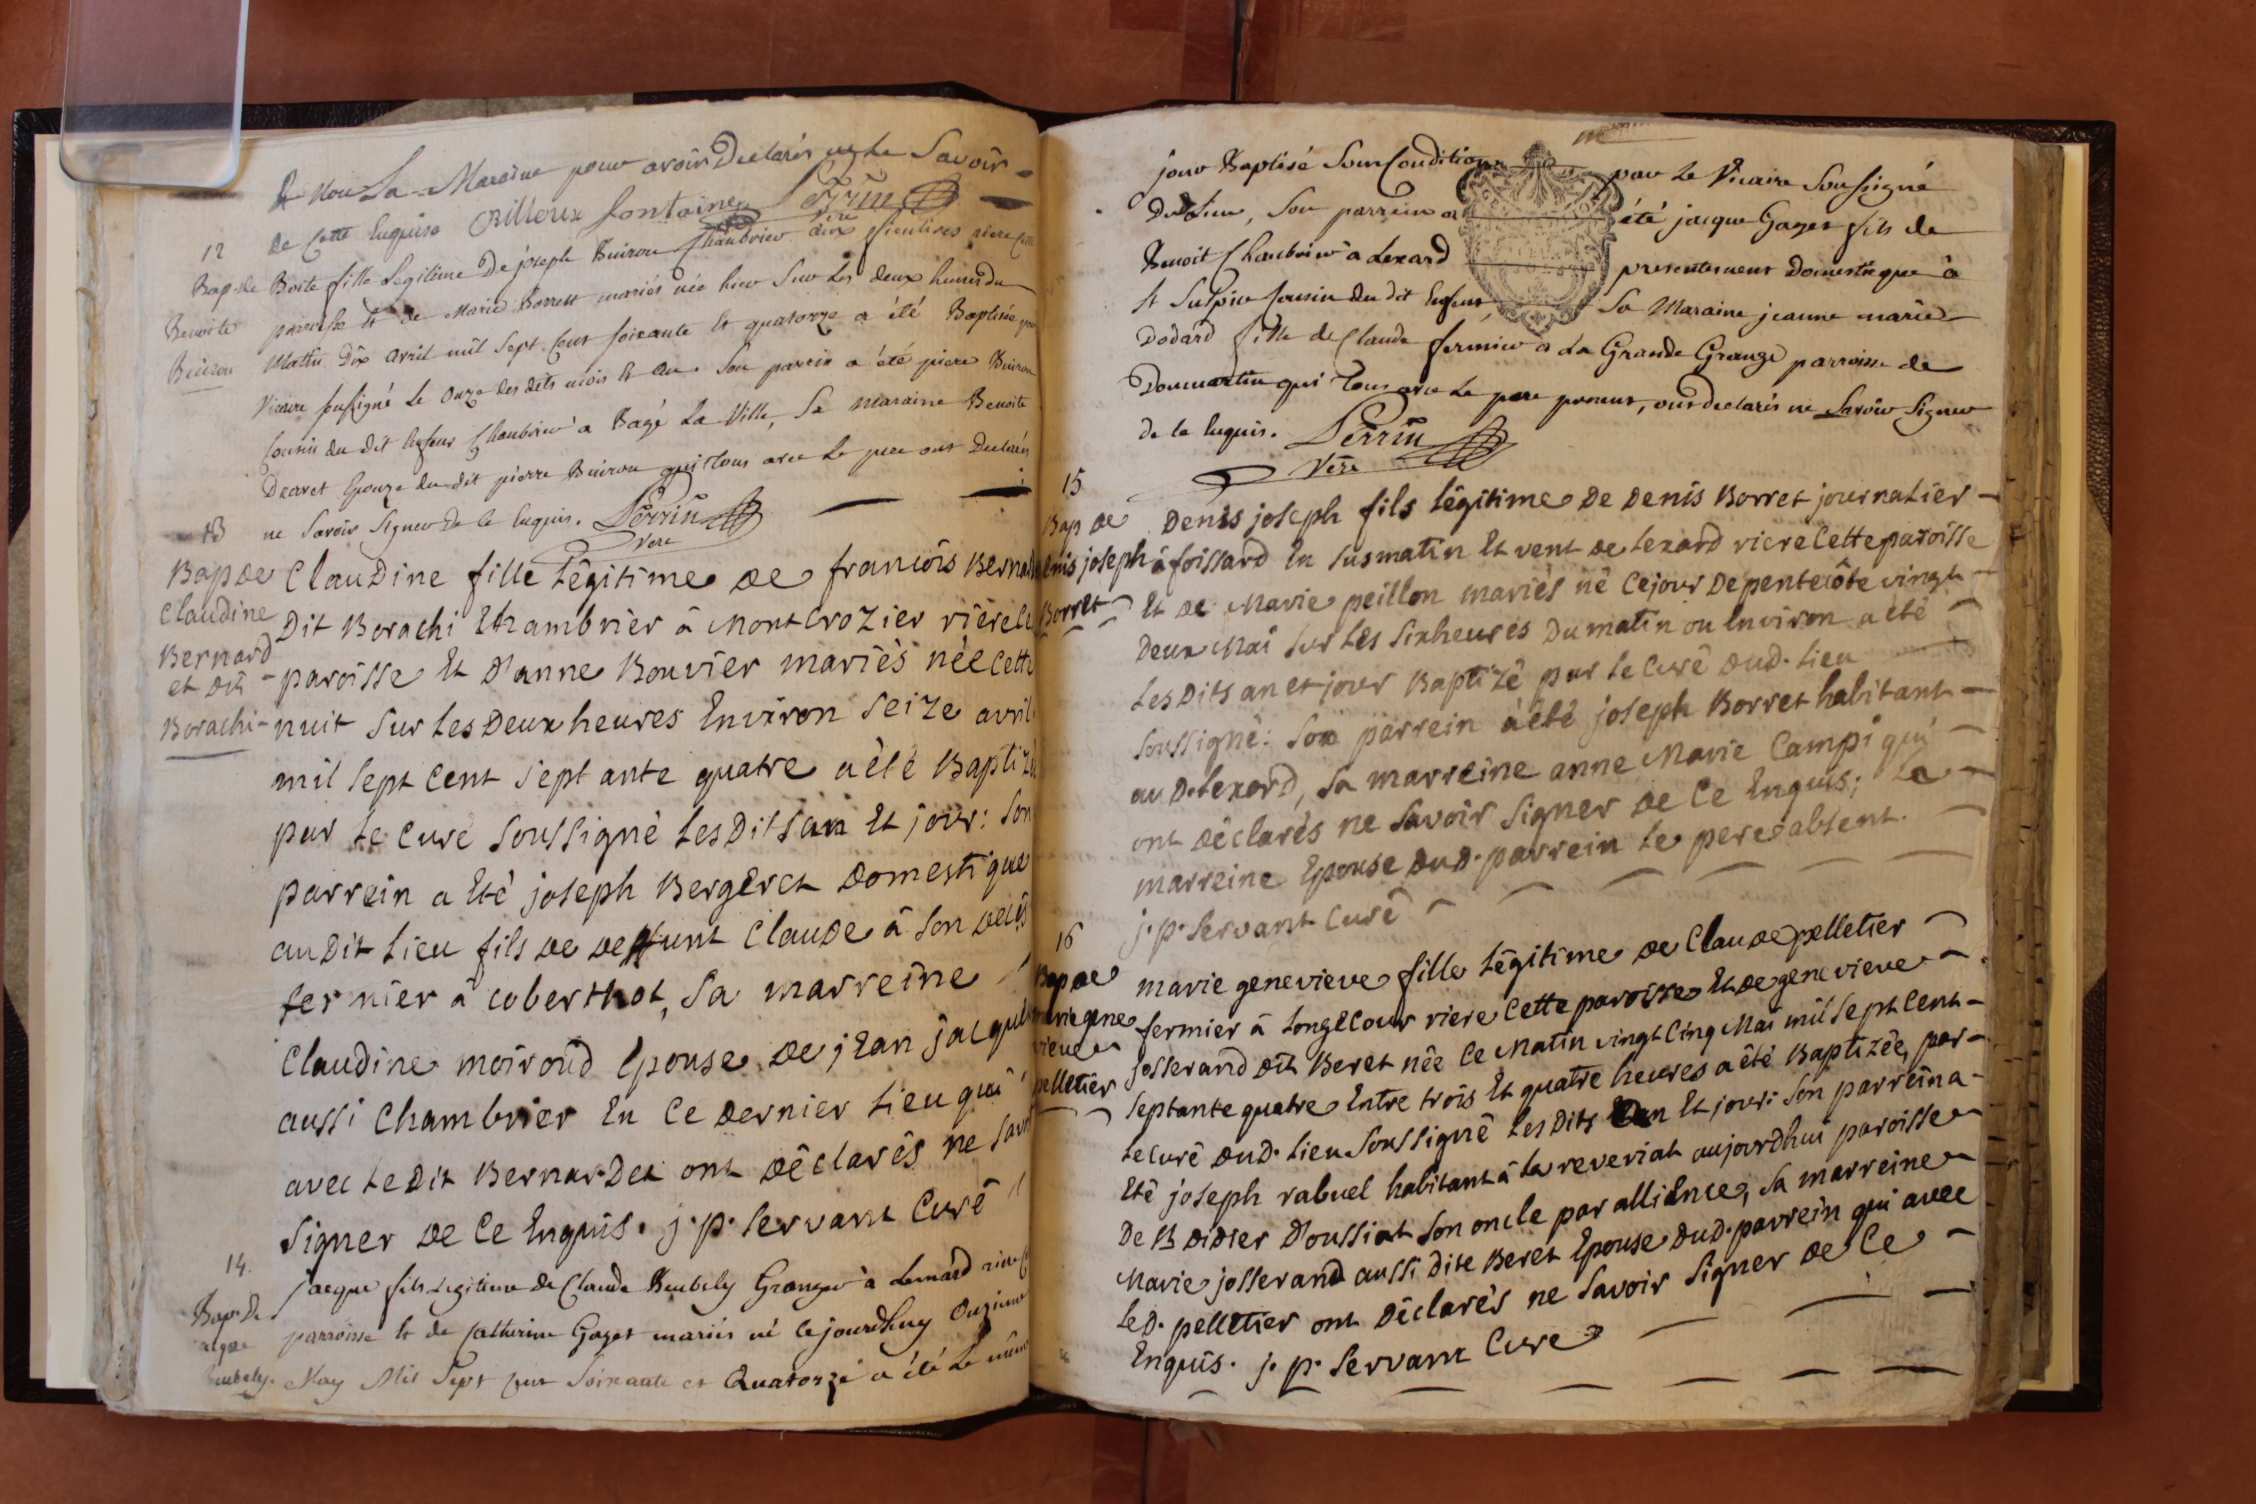 & non La Maraine pour avoir Declarés ne le Savoir
de Cette Enquise Rilloux fontaine Perrin
Vire
12
Bap. de
Benoite
Buiron
Boite fille Legitime De joseph Buiron Chambrier aux rière
paroisse & de Marie Borrest mariés née hier Sur Les deux heures du
Matin Dix avril mil Sept Cent soixante Et quatorze a été Baptisée
Vicaire soussigné Le Onze des dits mois & an. Son parrein a été piere Buiron
Cousin du dit Enfant Chambrier à Bagé La Ville, Sa Maraine Benoite
Dearet Epouze du dit pierre Buiron qui tous avec Le pere ont Declarés
ne Savoir Signer de le Enquis. Perrin
Vire
13
Bap de
Claudine
Bernard
et dit
Borachi
Claudine fille Légitime de francois Bernard
Dit Borachi Chambrier à Mont Crozier rière
paroisse Et D'anne Bouvier mariés née Cette
nuit Sur Les Deux heures Environ Seize avril
mil sept Cent Septante quatre a été Baptizé
par Le Curé Soussigné Les Dits an Et jour: Son
parrein a Eté joseph Bergeret Domestique
au Dit Lieu fils de deffunt Claude à Son décès
fermier à coberthot, Sa marreine
Claudine moiroud Epouse de jean jacques
aussi Chambrier En Ce dernier Lieu qui
avec Le Dit Bernardet ont déclarés ne Savoir
Signer de Ce Enquis. j. p. Servant Curé
14.
Bap. De
Jacque fils Legitime de Claude Granger à Lemard
parroisse & de Catherine Gozet mariés né Ce jourdhuy Onzieme
May Mil Sept cent Soixante et Quatorze a été Le même
jour Baptisé Sour Condition par Le Vicaire Soussigné
du Lieu, Son parrein a été jacque Gozet fils de
Benoit Chambrier à Lexard presentement Domestique à
St Sulpice Cousin du dit Enfant, Sa Maraine jeanne marie
Dodard fille de Claude fermier à La Grande Grange parroisse de
Dommartin qui Tous avec Le pere present, ont declarés ne Savoir Signer
de le Enquis. Perrin
Vire
15
Bap de
Denis joseph
Borret
Denis joseph fils Légitime de Denis Borret journalier
à foissard En Susmatin Et vent de Lexard riere Cette paroisse
Et de Marie peillon mariés né Ce jour De pentecôte vingt
Deux Mai Sur Les Six heures Du matin ou Environ a été
Les Dits an et jour Baptizé par Le Curé dud. Lieu
Soussigné: Son parrein a été joseph Borret habitant
au D. Lexard, Sa marreine anne Marie Campi qui
ont déclarés ne Savoir Signer de Ce Enquis; La
marreine Epouse dud. parrein Le pere absent.
j. p. Servant Curé
16
Bap de
marie gene
vieve
pelletier
marie genevieve fille Légitime de Claude pelletier
fermier à Longecour riere Cette paroisse Et de genevieve
josserand dit Beret née Ce Matin vingt Cinq Mai mil Sept Cent
Septante quatre Entre trois Et quatre heures a été Baptizée, par
Le Curé dud. Lieu Soussigné Les Dits an Et jour: Son parrein a
Eté joseph rabuel habitant à La reveriat aujourdhui paroisse
De St Didier D'oussiat Son oncle par allience, Sa marreine
Marie josserand aussi dite Beret Epouse dud. parrein qui avec
Le D. pelletier ont Déclarés ne Savoir Signer de Ce
Enquis. j. p. Servant Curé